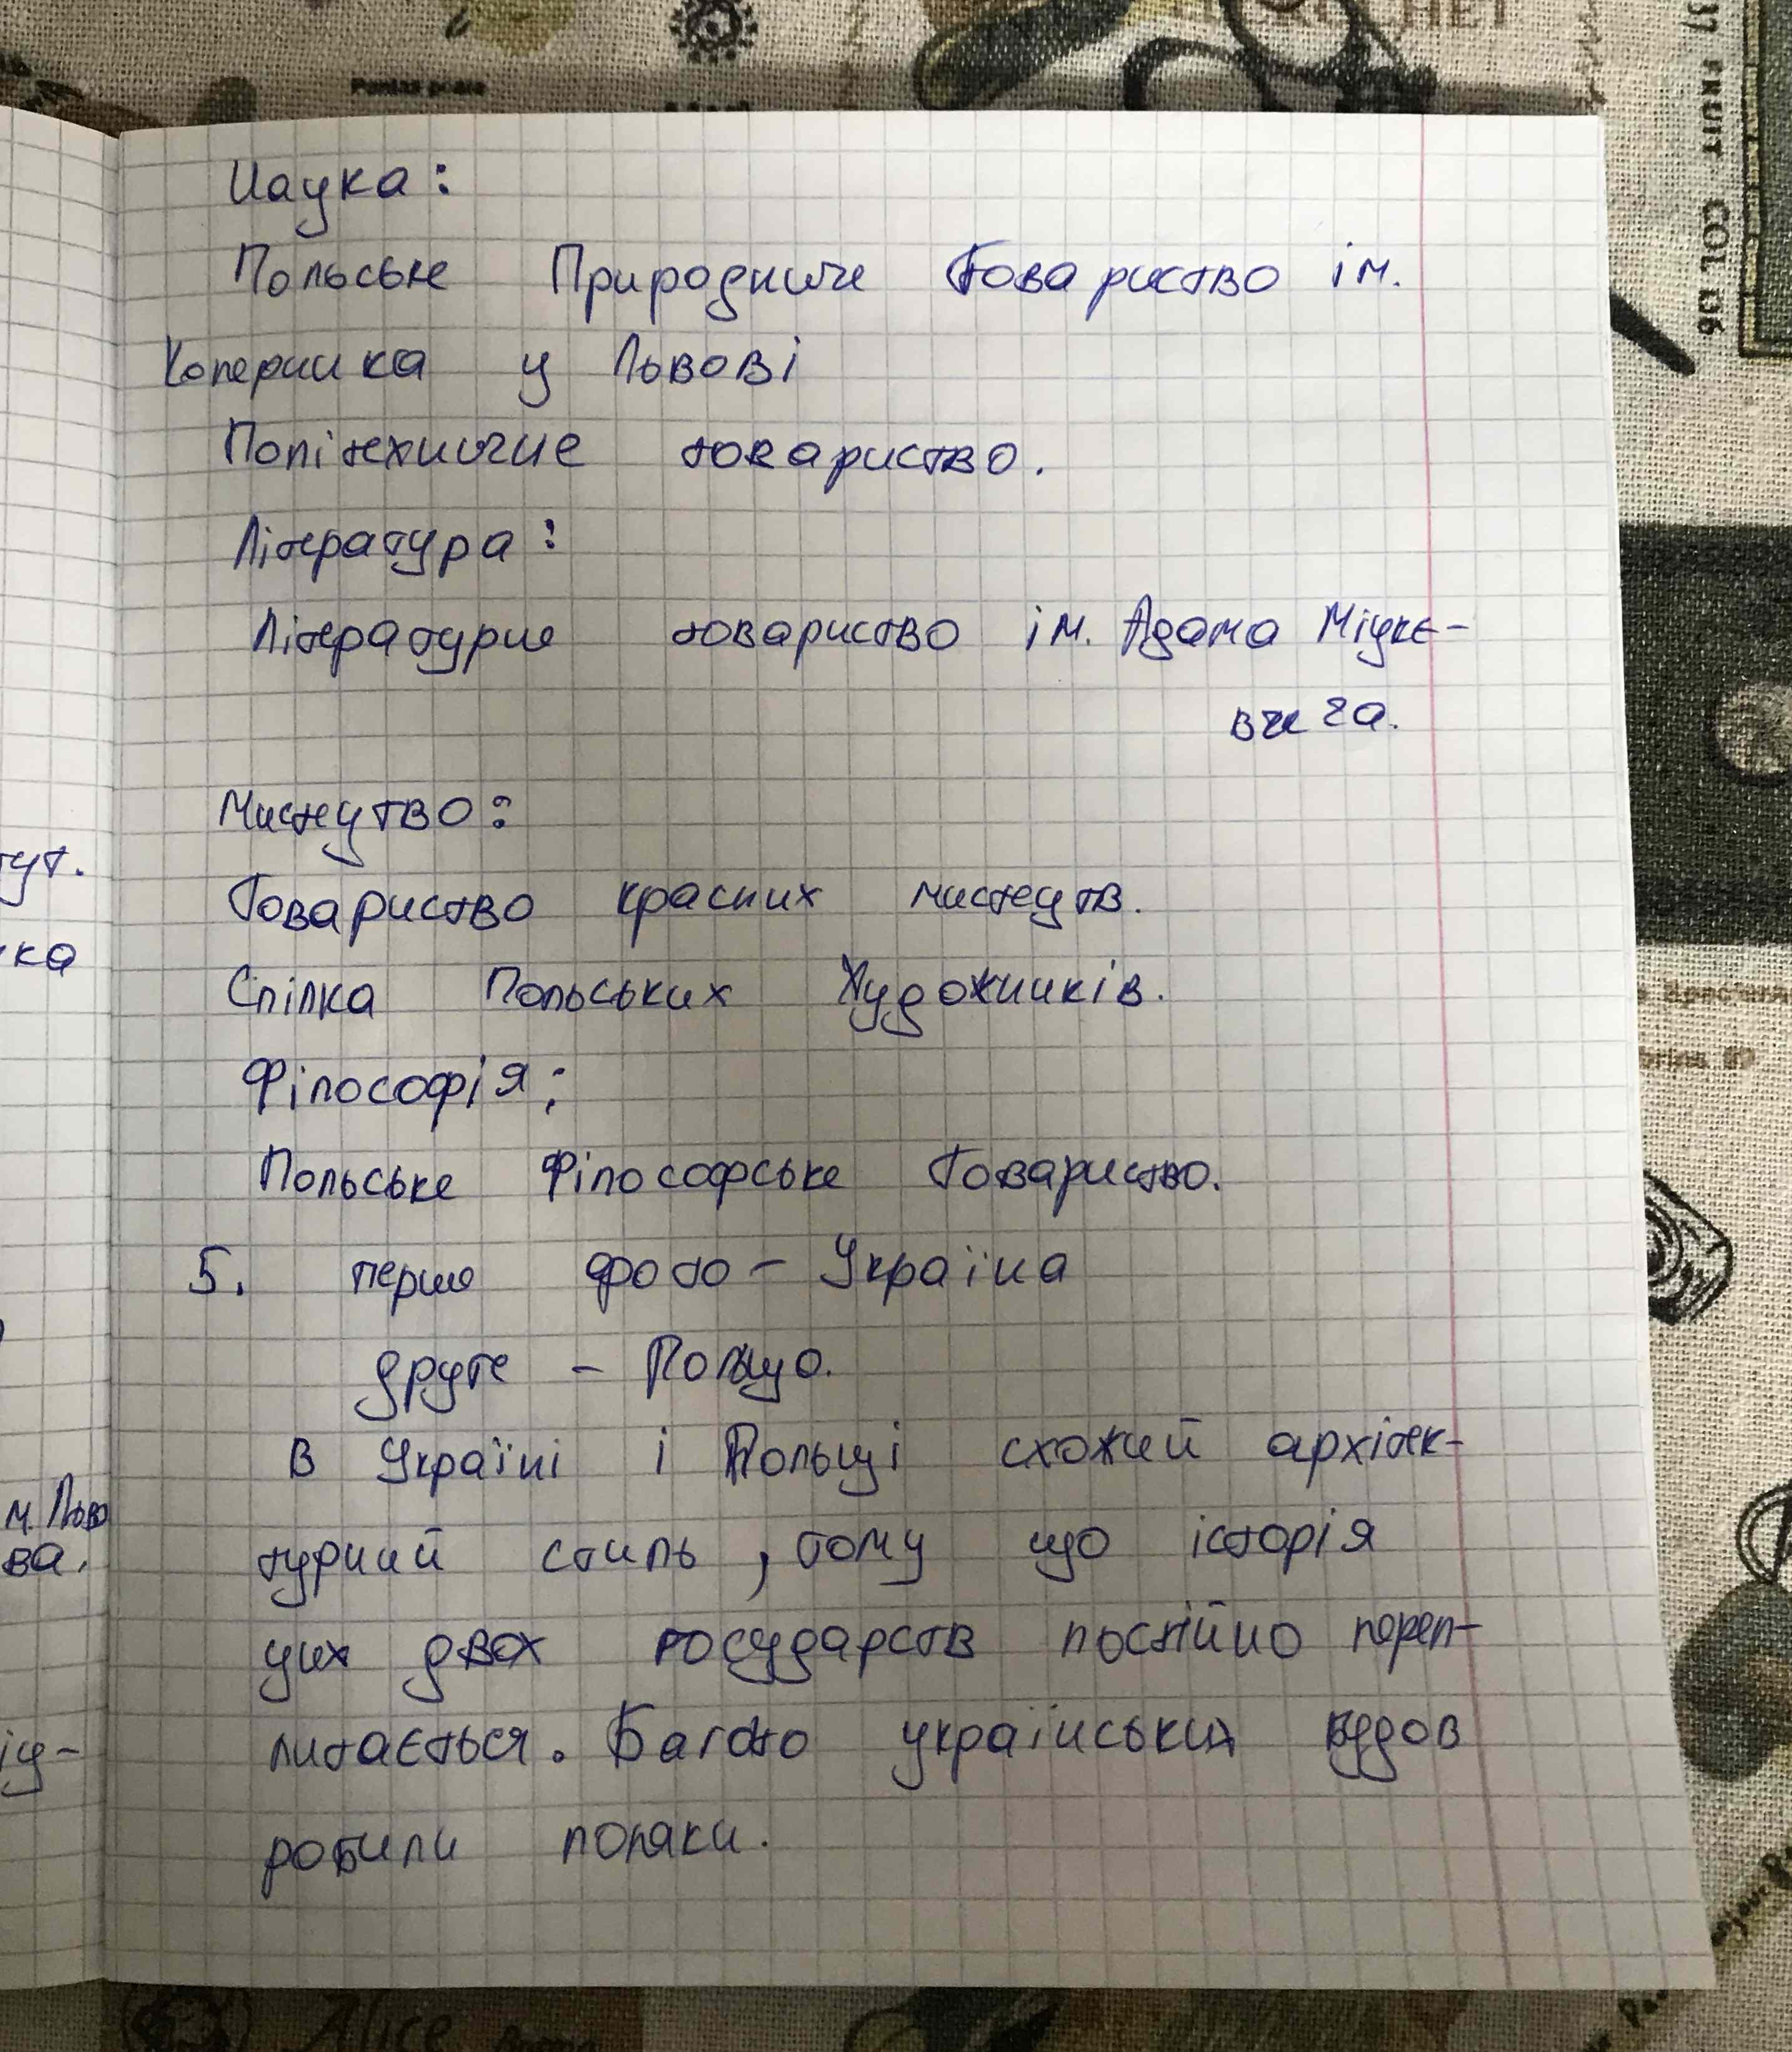 Наука:
Польське Природниче Товариство ім.
Коперника у Львові
Політехничне товариство.
Література:
Літературне товариство ім. Адама Міцкє-
вича.
Мистецтво:
Товариство красних мистецтв.
Спілка Польських Художників.
Філософія:
Польське Філософське Товариство.
5. перше фото - Україна
друге - Польщо.
В Україні і Польщі схожий архітек-
турний стиль, тому що історія
цих двох государств постійно переп-
литається. Багато українських будов
робили поляки.
тут.
ка
м. Льво
ва.
іц-
Alice
FRUIT COL